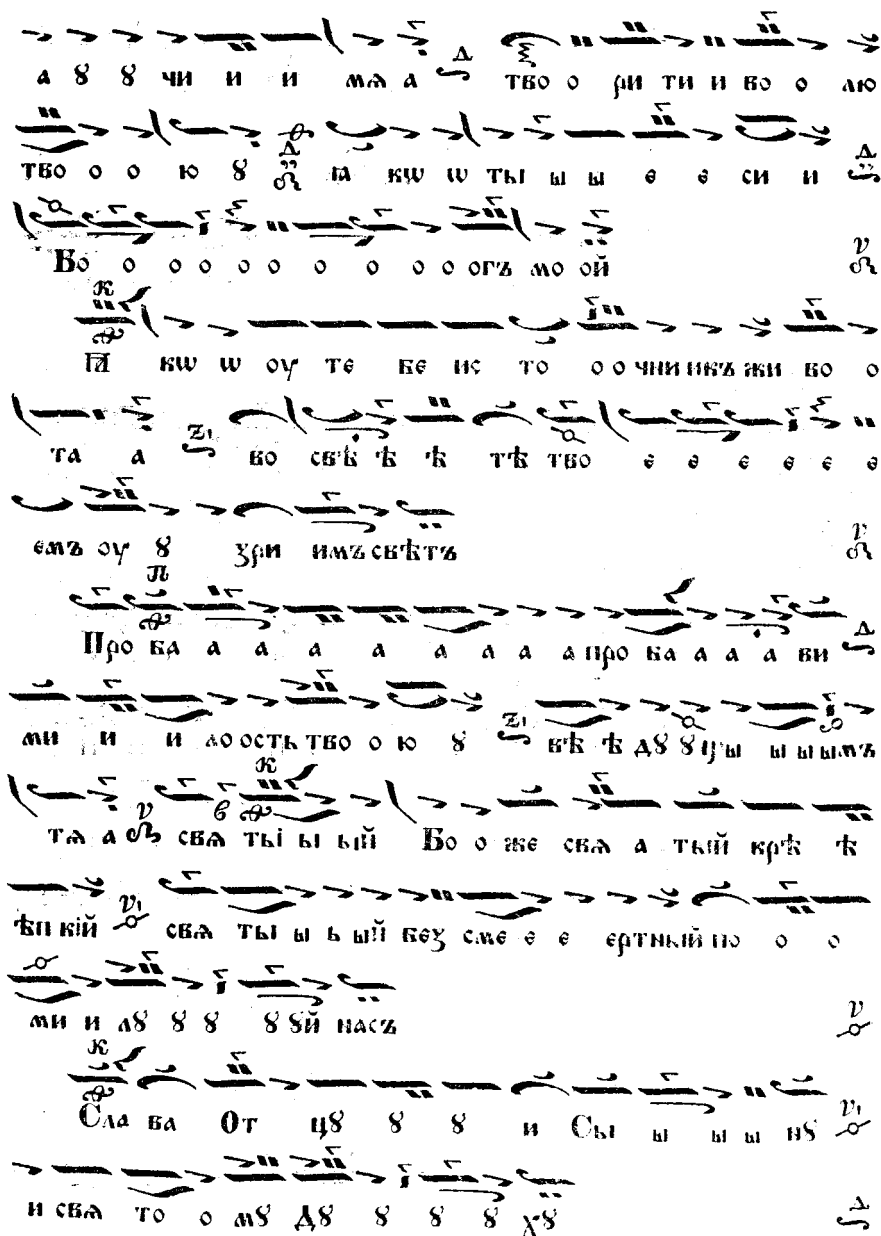 а ꙋ ꙋ чи и и мѧ а тво о ри ти и во о лю
тво о о ю ꙋ ꙗ кѡ ѡ ты ы ы е е си и
Бо о о о о о о о о о огъ мо ой
Ꙗ кѡ ѡ оу те бе ис то о о чни икъ жи во о
та а во свѣ ѣ ѣ тѣ тво е е е е е е
емъ оу ꙋ ꙁри имъ свѣтъ
Про ба а а а а а а а а про ба а а а ви
ми и и ло ость тво о ю ꙋ вѣ ѣ дꙋ ꙋ щы ы ы ымъ
тѧ а свѧ ты ы ый Бо о же свѧ а тый крѣ ѣ
ѣп кій свѧ ты ы ы ый беꙁ сме е е ертный по о о
ми и лꙋ ꙋ ꙋ ꙋ ꙋй насъ
Сла ва От цꙋ ꙋ ꙋ и Сы ы ы ы нꙋ
и свѧ то о мꙋ Дꙋ ꙋ ꙋ ꙋ хꙋ